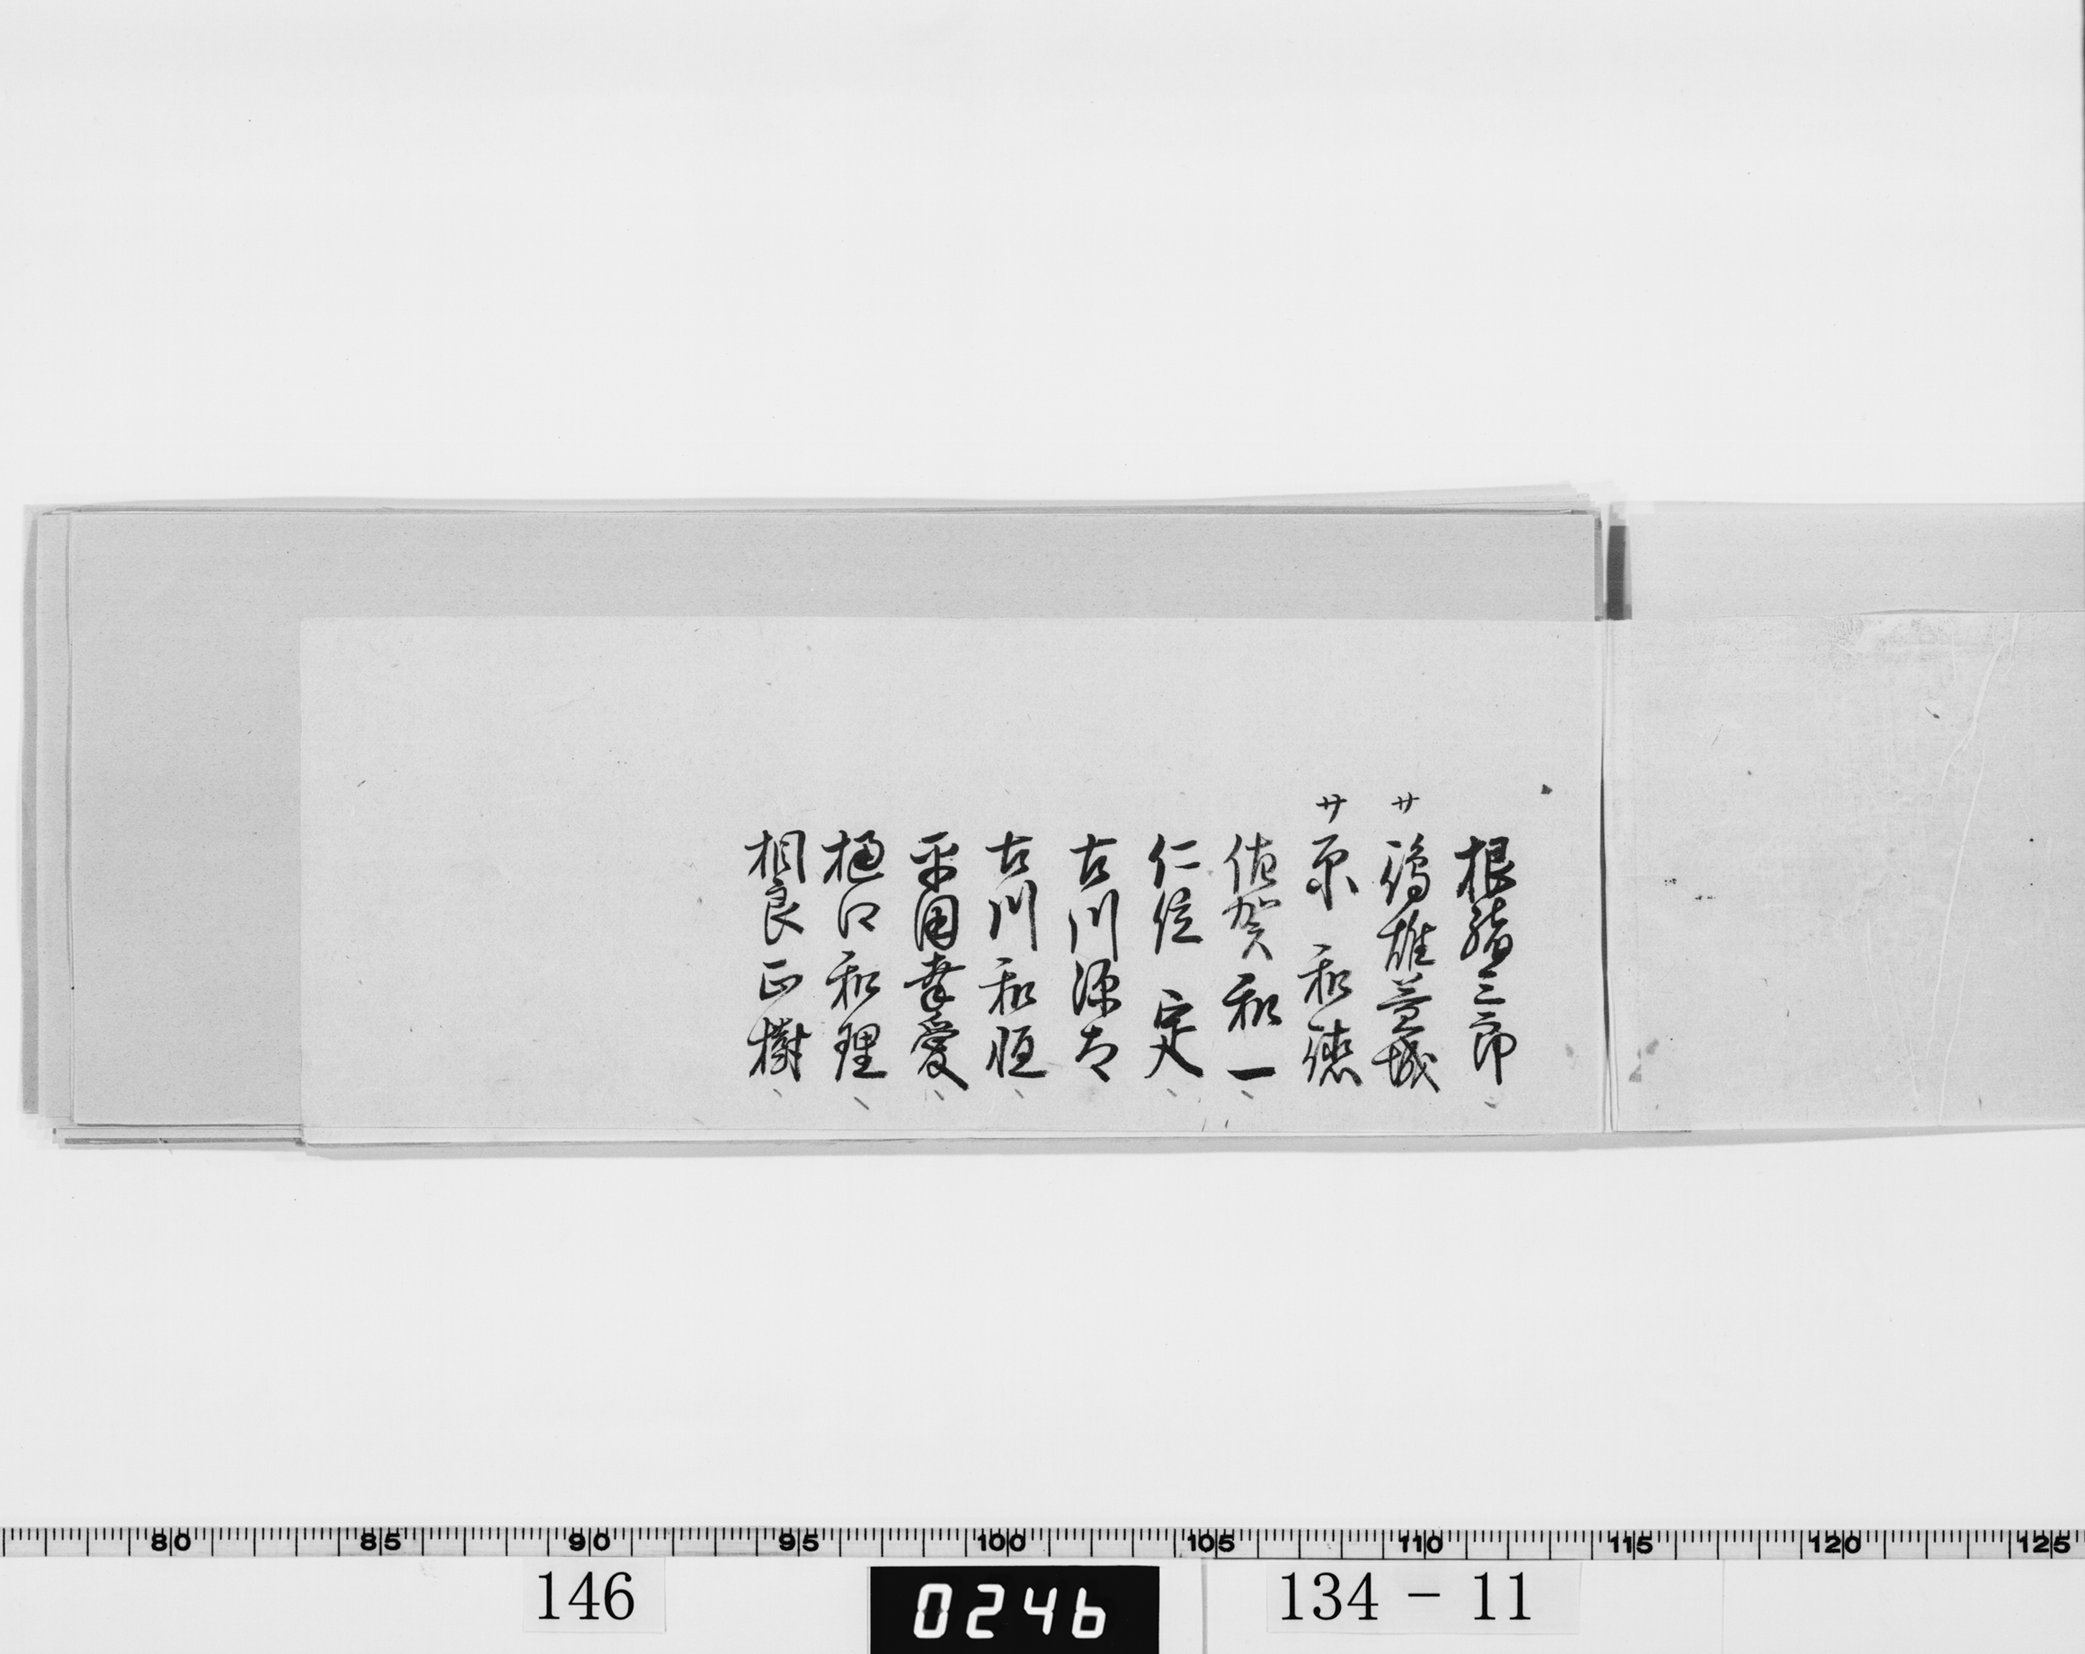 根緒三郎
サ
嶋雄益城
サ
原 和徳
佐賀和一
仁位 定
古川源太
古川和恒
平田孝愛
樋口和理
相良正樹
80 85 90 95 100 105 110 115 120 125
146
0246
134-11